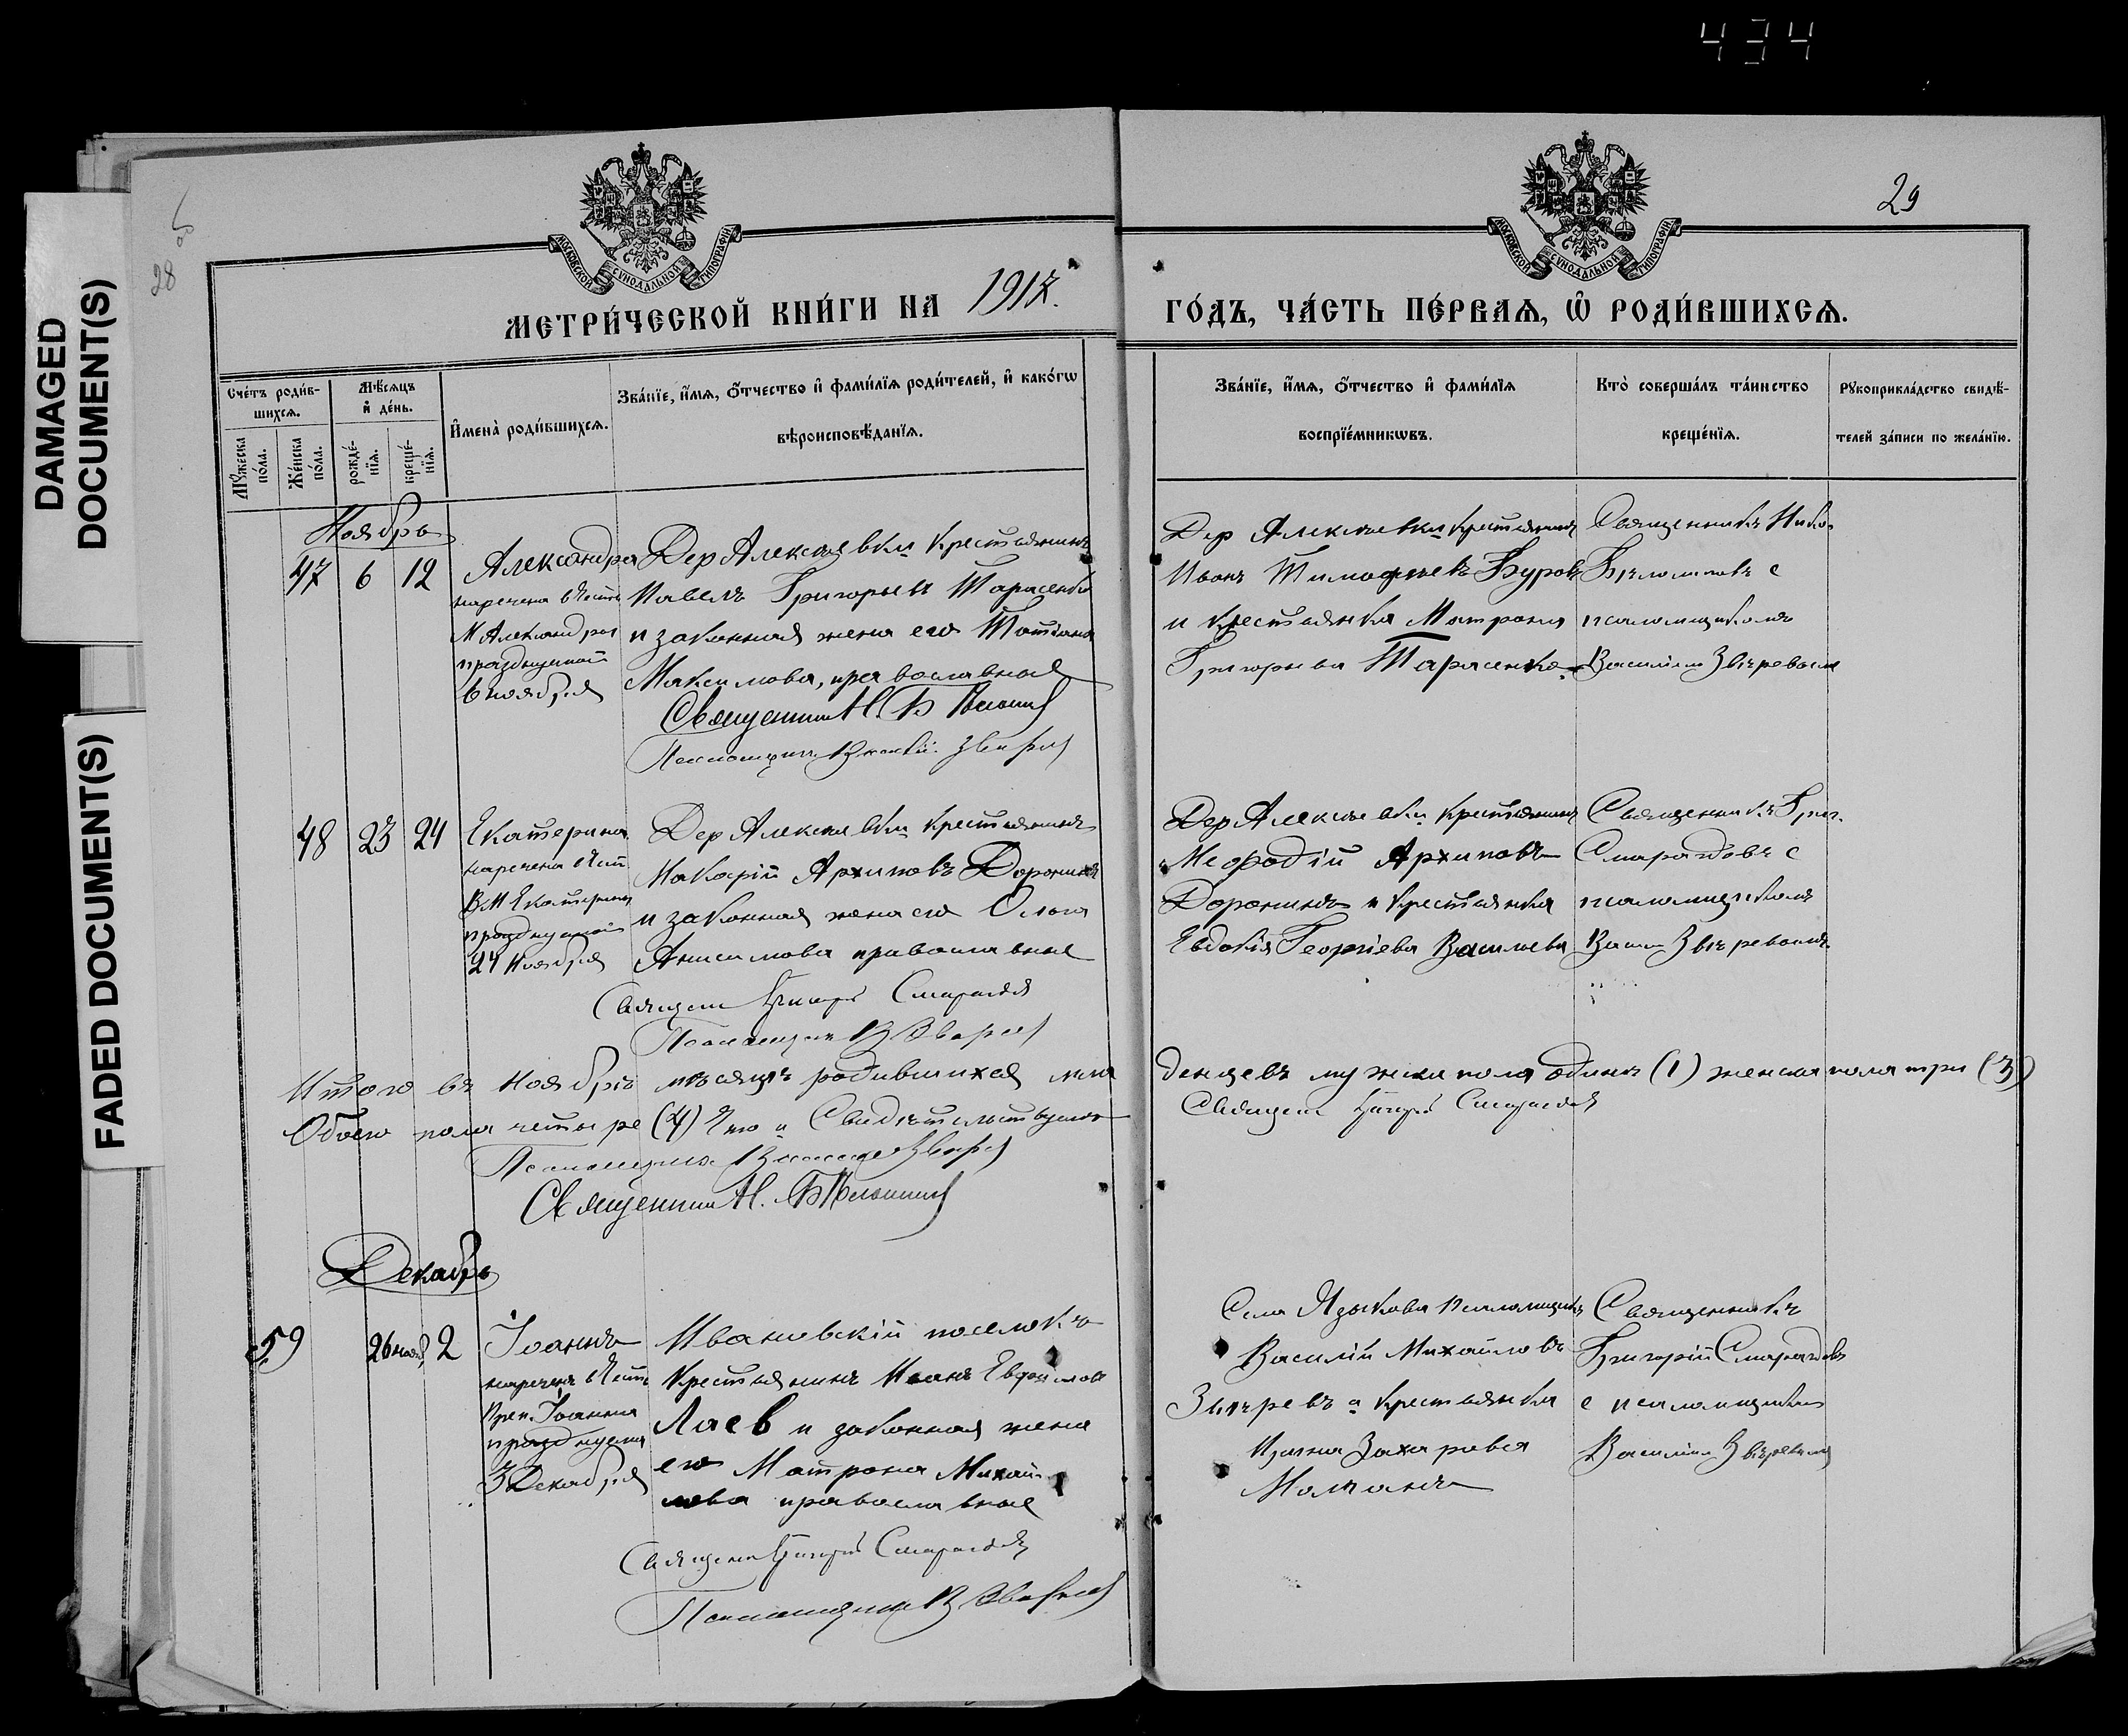 434
DAMAGED
DOCUMENT(S)
FADED DOCUMENT(S)
28
29
МОСКОВСКОЙ СУНОДАЛЬНОЙ ТИПОГРАФІИ
МОСКОВСКОЙ СУНОДАЛЬНОЙ ТИПОГРАФІИ
МЕТРИ́ЧЕСКОЙ КНИ́ГИ НА 1917
ГО́ДЪ, ЧА́СТЬ ПЕ́РВАѦ, Ѡ҆ РОДИ́ВШИХСѦ.
Сче́тъ роди́в-
шихсѧ.
Мꙋ́жеска по́ла.
Же́нска по́ла.
Мѣ́сѧцъ
и҆ де́нь.
рожде́-нїѧ.
креще́-нїѧ.
И҆мена̀ роди́вшихсѧ.
Зва́нїе, и҆́мѧ, ѻ҆́тчество и҆ фами́лїѧ роди́телей, и҆ како́гѡ
вѣроисповѣ́данїѧ.
Зва́нїе, и҆́мѧ, ѻ҆́тчество и҆ фами́лїѧ
воспрїе́мникѡвъ.
Кто̀ соверша́лъ та́инство
креще́нїѧ.
Рꙋкоприкла́дство свидѣ́-
телей за́писи по жела́нїю.
Ноябрь
47 6 12
Александра
наречена въ честь
М Александры
празднуемой
6 ноября
Дер Алексѣевки крестьянинъ
Павелъ Григорьевъ Тарасенко
и законная жена его Татіана
Максимова, православные
Священник Н.
Псаломщик Василій Зверев
Дер Алексѣевки крестьянинъ
Иванъ Тимофеевъ Буровъ
и крестьянка Матрона
Григорьева Тарасенко
Священникъ Нико.
с
псаломщикомъ
Василіем Звѣревымъ
48 23 24
Екатерина
наречена въ чест
ВМ Екатерины
празднуемой
24 Ноября
Дер Алексѣевки крестьянинъ
Макарій Архиповъ Доронинъ
и законная жена его Ольга
Анисимова православные
Священ Григорій Смарагдов
Псаломщик В Зверев
Дер Алексѣевки крестьянинъ
Меѳодій Архиповъ
Доронинъ и крестьянка
Евдокія Георгіева Васильева
Священникъ Григ.
Смарагдовъ с
псаломщикомъ
Васил Звѣревымъ
Итого въ ноябрѣ мѣсяцѣ родившихся мла
денцевъ мужска пола одинъ (1) женска пола три (3)
Обоего пола четыре (4) Что и Свидѣтельствуемъ
Священ Григорій Смарагдов
Псаломщик Василій Зверев
Священник Н.
Декабрь
59 26 нояб 2
Іоаннъ
наречен въ честь
Преп. Іоанна
празднуема
3 Декабря
Ивановскій поселокъ
Крестьянинъ Иванъ Евфимов
Лаев и законная жена
его Матрона Михай
лова православные
Священ Григорій Смарагдов
Псаломщик В Зверев
Села Языкова псаломщикъ
Василій Михайловъ
Звѣревъ и крестьянка
Захарова
Священникъ
Григорій Смарагдовъ
с псаломщиком
Василіем Звѣревымъ